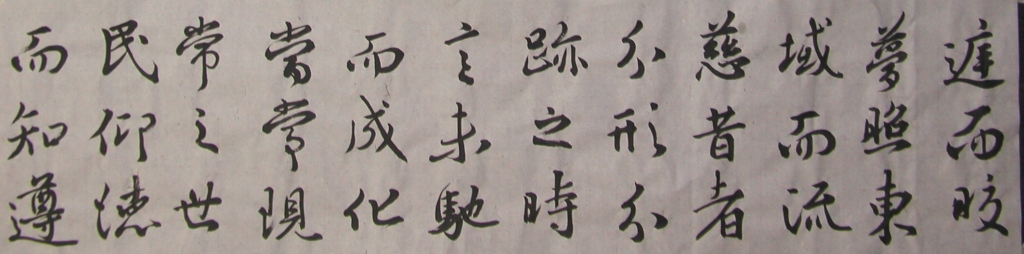 庭而皎
夢照東
域而流
慈昔者
分形分
跡之時
言未馳
而成化
當常現
常之世
民仰德
而知遵